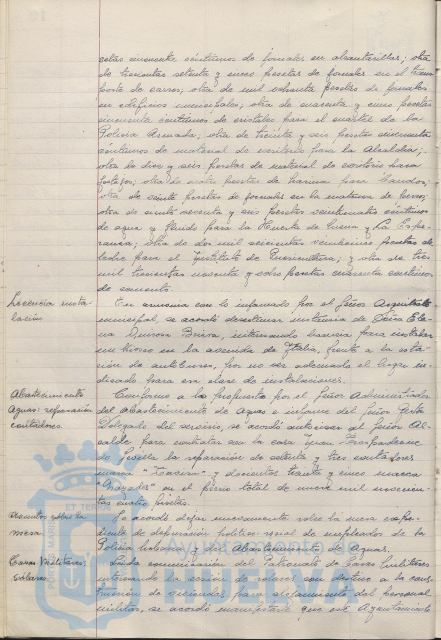 setas cincuenta céntimos de jornales en alcantarillas; otra
de trescientas setenta y cinco pesetas de jornales en el trans-
porte de carros; otra de mil ochenta pesetas de jornales
en edificios municipales; otra de cuarenta y cinco pesetas
cincuenta céntimos de cristales para el cuartel de la
Policía Armada; otra de treinta y seis pesetas cincuenta
céntimos de material de escritorio para la Alcaldía;
otra de diez y seis pesetas de material de escritorio para
festejos; otra de cuatro pesetas de harina para
otra de veinte pesetas de jornales en la matanza de perros;
otra de ciento noventa y seis pesetas veinticuatro céntimos
de agua y fluido para la Huerta de Mena y La Espe-
ranza; otra de dos mil seiscientas veinticinco pesetas de
leche para el Instituto de Puericultura; y otra de tres
mil trescientas noventa y ocho pesetas cuarenta céntimos
de cemento.
Licencia insta-
lación
En armonía con lo informado por el Señor Arquitecto
municipal, se acordó desestimar instancia de Doña Ele-
na Quirosa interesando licencia para instalar
un kiosco en la avenida de Italia, frente a la esta-
ción de autobuses, por no ser adecuado el lugar in-
dicado para esa clase de instalaciones.
Abastecimiento
Aguas: reparación
contadores
Conforme a lo propuesto por el Señor Administrador
del abastecimiento de Aguas e informe del Señor
Delegado del servicio, se acordó autorizar al Señor Al-
calde para contratar con la casa Juan
de Sevilla la reparación de setenta y tres contadores
marca y doscientos treinta y cinco marca
en el precio total de nueve mil novecien-
tas cuatro pesetas.
Asuntos sobre la
mesa
Se acordó dejar nuevamente sobre la mesa expe-
diente de depuración político-social de empleados de la
Policía Urbana y del Abastecimiento de Aguas.
Casas Militares
solares
Leída comunicación del Patronato de Casas Militares
interesando la cesión de solares con destino a la cons-
trucción de viviendas para alojamiento del personal
militar, se acordó manifestarle que este Ayuntamiento
Ayuntamiento de
HUELVA